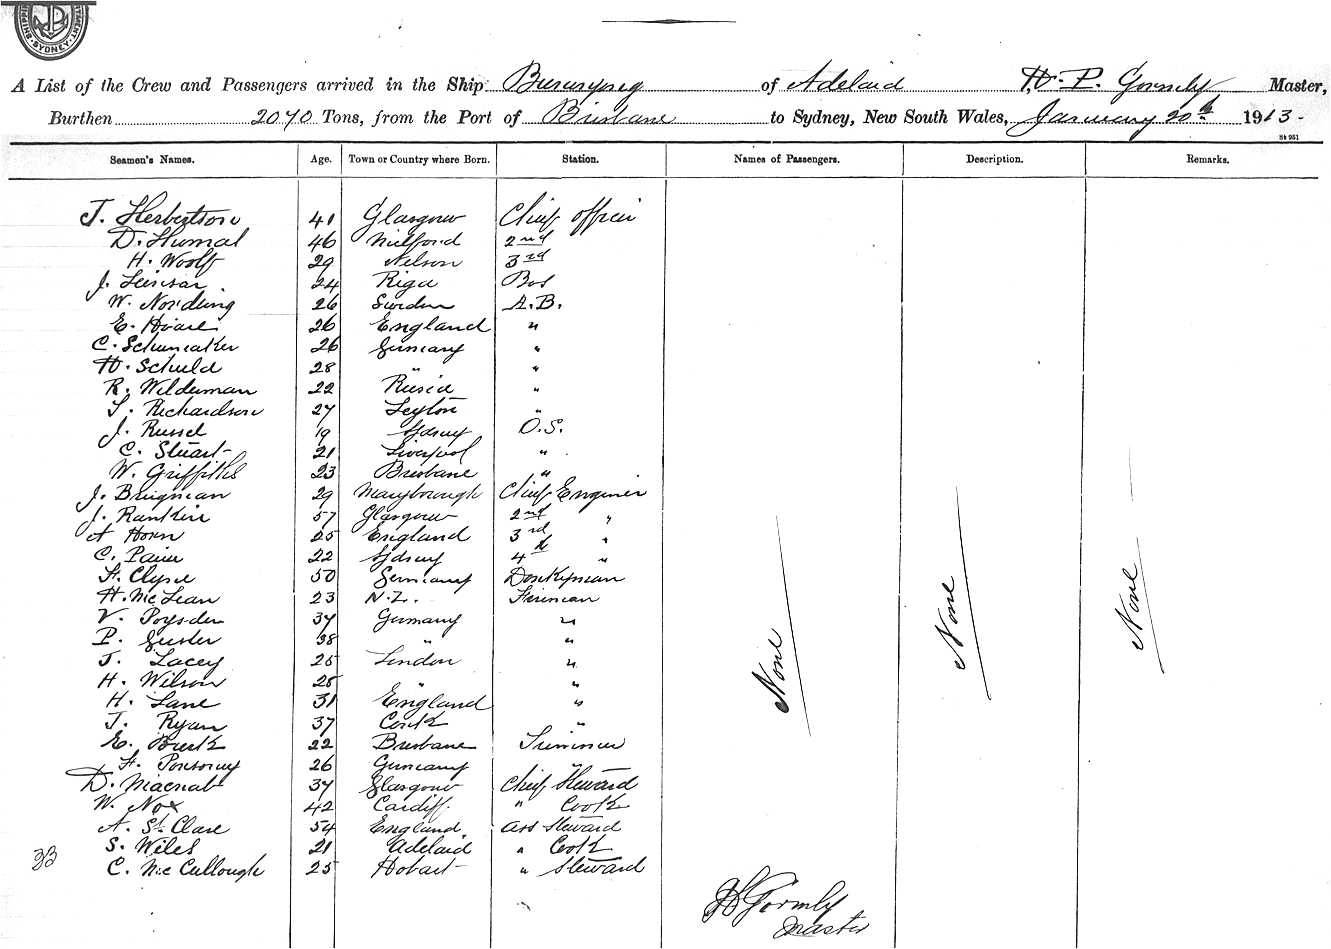 SHIPPING
SYDNEY
A List of the Crew and Passengers arrived in the Ship of Adelaid W. P. Gormly Master,
Burthen 2070 Tons, from the Port of Brisbane to Sydney, New South Wales, January 20th 1913-
Seamen's Names. Age. Town or Country where Born. Station. Names of Passengers. Description. Remarks.
J. Herbertson 41 Glasgow Chief officer
D. 46 Milford 2nd
H. Woolf 29 Nelson 3rd
J. 24 Riga Bos
W. Nordung 26 Sweden A.B.
E. Hoare 26 England "
C. Schumaker 26 Germany "
H. Schuld 28 " "
R. Wilderman 22 Rusia "
T. Richardson 27 Leyton "
J. Russel 19 Sydney O.S.
C. Stuart 21 Liverpool "
W. Griffiths 23 Brisbane "
J. 29 Maryborough Chief Enginer
J. Rankin 57 Glasgow 2nd "
A Horn 25 England 3rd "
C. 22 Sydney 4th "
50 Germany Donkyman
H. McLean 23 N.Z. Fireman
V. Poysden 37 Germany "
P. 38 " "
T. Lacey 25 London "
H. Wilson 25 " "
H. Lane 31 England "
J. Ryan 37 Cork "
E. Burk 22 Brisbane Trimmer
26 Germany "
D. Macnab 37 Glasgow Chief Steward
W. Nox 42 Cardiff. " Cook
A. St. Clare 54 England. ass Steward
33 S. Wiles 21 Adelaid " Cook
C. McCullough 25 Hobart " Steward
None
None
None
Gormly
Master